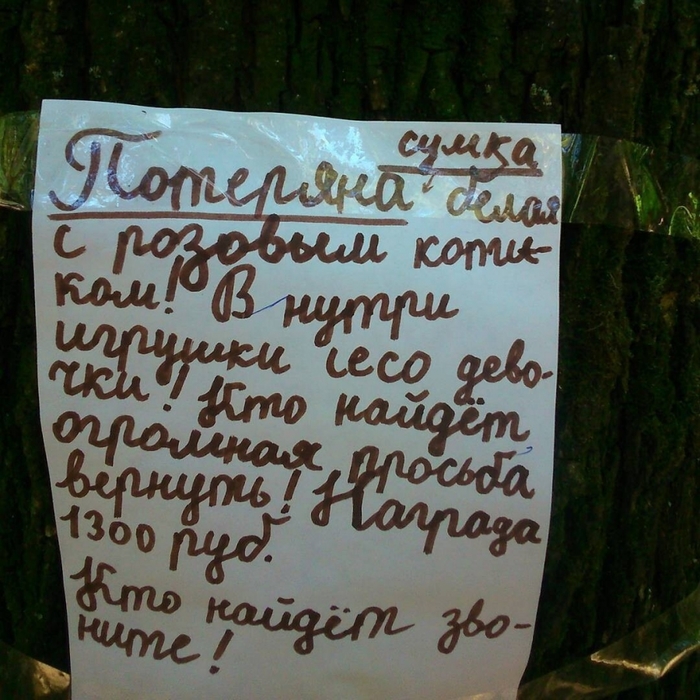 сумка
Потеряна белая
с розовым коти-
ком! В нутри
игрушки
дево-
чки! Кто найдёт
огромная просьба
вернуть! Награда
1300 руб.
Кто найдёт зво-
ните!